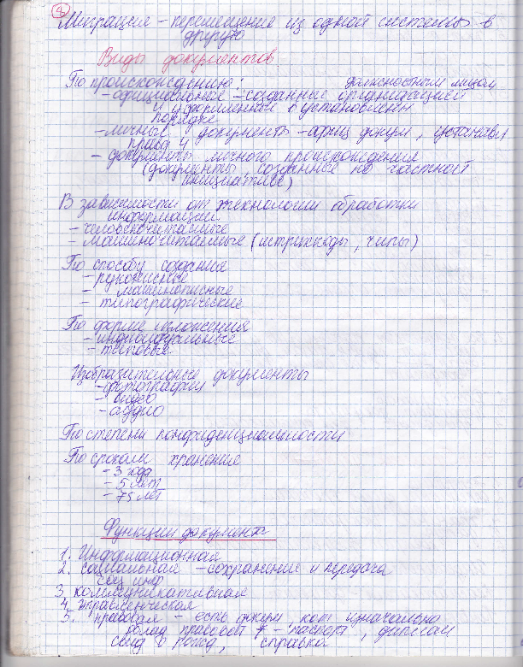 Миграция – перемещение из одной системы в
другую
Виды документов
По происхождению:
должностным лицом
- официальные – созданные организацией
и оформленные в установленн
порядке
- личные документы – офиц докум, устанавл
- документы личного происхождения
(документы, созданные по частной
инициативе)
В зависимости от технологии обработки
информации
- человекочитаемые
- машиночитаемые (штрихкоды, чипы)
По способу создания
- рукописные
- машинописные
- типографические
По форме изложения
- индивидуальные
- типовые
Изобразительные документы
- фотографии
- видео
- аудио
По степени конфиденциальности
По срокам хранения
- 3 года
- 5 лет
- 75 лет
Функции документа
1. Информационная
2. социальная – сохранение и передача
соц инф
3. коммуникативная
4. управленческая
5. правовая – есть докум кот изначально
облад правовой – паспорт, диплом
свид о рожд, справка